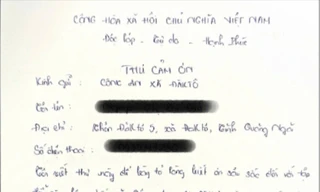 CÔNG HÒA XÃ HỘI CHỦ NGHĨA VIỆT NAM
Độc lập - Tự do - Hạnh Phúc
THƯ CẢM ƠN
Kính gửi : CÔNG AN XÃ ĐĂKTÔ
Tôi tên :
Địa chỉ : Thôn ĐăkTô 5, xã ĐăkTô, tỉnh Quảng Ngãi
Số điện thoại :
Tôi viết thư này để bày tỏ lòng biết ơn sâu sắc đối với tập